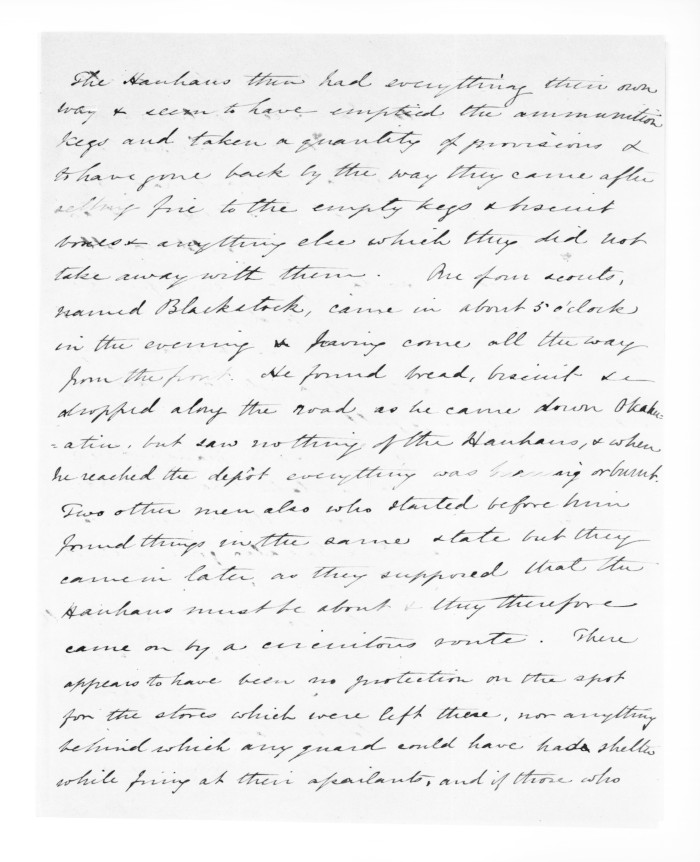 The Hauhaus then had everything their own
way & seem to have emptied the ammunition
kegs and taken a quantity of provisions &
to have gone back by the way they came after
setting fire to the empty kegs & biscuit
boxes & anything else which they did not
take away with them. One of our scouts,
named Blackstock, came in about 5 o'clock
in the evening having come all the way
from the front. He found bread, biscuit &c
dropped along the road as he came down Okahu=
=atiu, but saw nothing of the Hauhaus, & when
he reached the depôt everything was or burnt.
Two other men also who started before him
found things in the same state but they
came in later as they supposed that the
Hauhaus must be about & they therefore
came on by a circuitous route. There
appears to have been no protection on the spot
for the stores which were left there, nor anything
behind which any guard could have had shelter
while firing at their assailants, and if those who